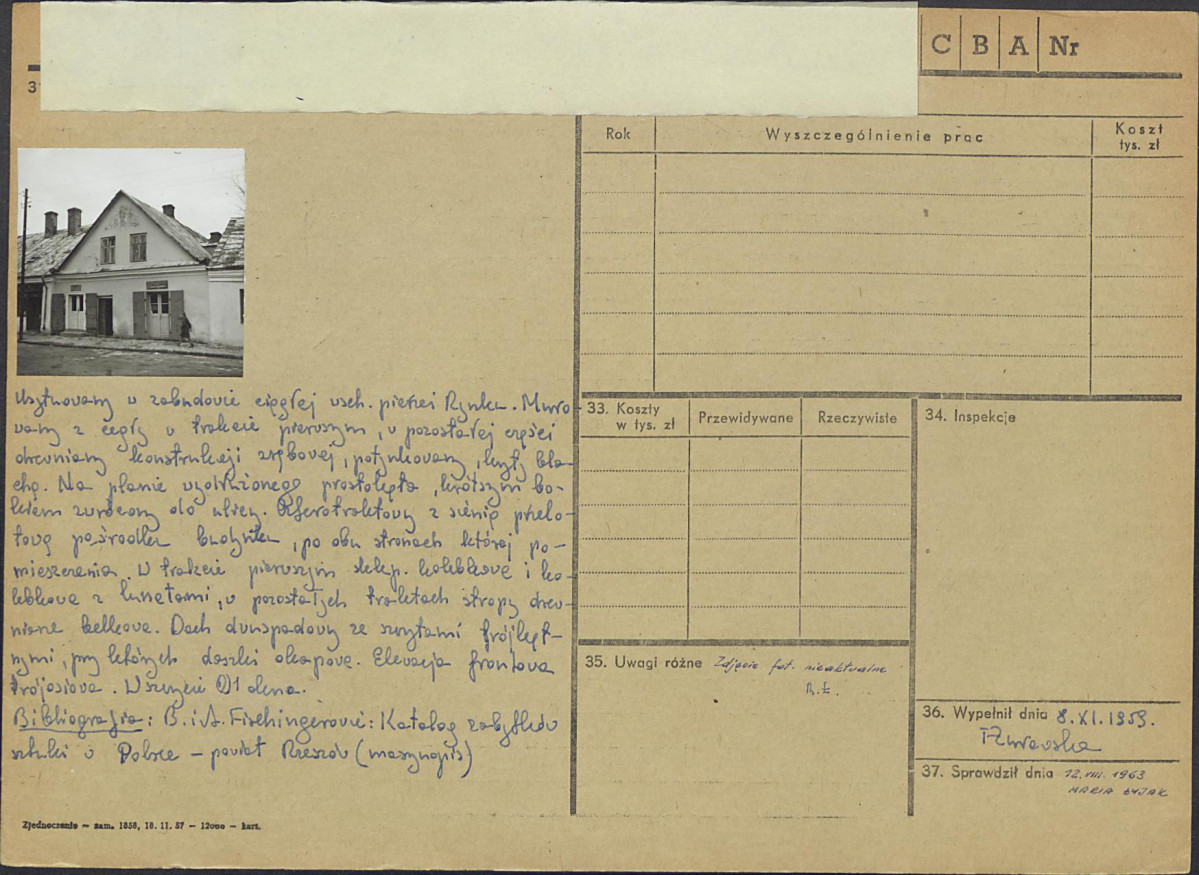 C B A Nr
31
Rok Wyszczególnienie prac Koszt tys. zł
Usytuowany w zabudowie ciągłej wsch. pierzei Rynku. Muro-
wany z cegły w trakcie pierwszym, w pozostałej części
drewniany konstrukcji zrębowej, potynkowany, kryty bla-
chą. Na planie wydłużonego prostokąta, krótszym bo-
kiem zwrócony do ulicy. Czterotraktowy z sienią przelo-
tową pośrodku budynku, po obu stronach której po-
mieszczenia. W trakcie pierwszym sklep. kolebkowe i ko-
lebkowe z lunetami, w pozostałych traktach stropy drew-
niane belkowe. Dach dwuspadowy ze szczytami trójkąt-
nymi, przy których daszki okapowe. Elewacja frontowa
trójosiowa. W szczycie okna.
Bibliografia: B. i A. Fischingerowie: Katalog zabytków
sztuki w Polsce - powiat Rzeszów (maszynopis)
33. Koszty w tys. zł Przewidywane Rzeczywiste
34. Inspekcje
35. Uwagi różne Zdjęcie fot. nieaktualne
36. Wypełnił dnia 8.XI.1959.
37. Sprawdził dnia 12.VIII.1963
Zjednoczenie — zam. 1858, 18. 11. 57 — 12000 — kart.